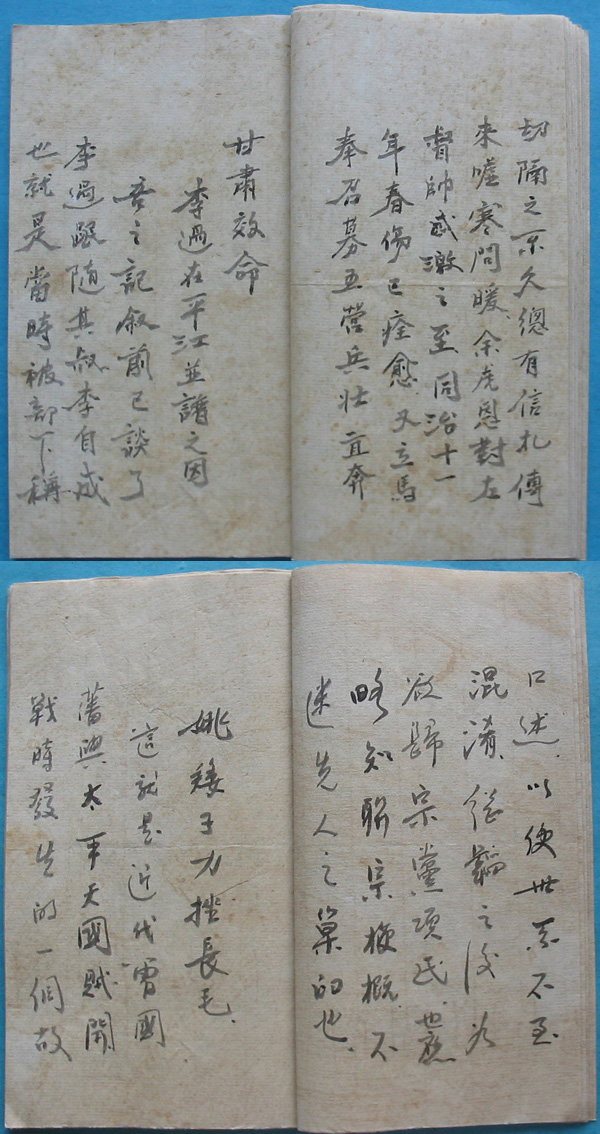 切隔之不久總有信札傳
來噓寒問暖余虎恩對左
督帥感激之至同治十一
年春傷已痊愈又立馬
奉召募五營兵壯直奔
甘肅效命
李過在平江並譜之因
吾之記敘前已談了
李過跟隨其叔李自成
也就是當時被部下稱
口述以使世系不至
混淆從鷂之後為
啟歸宗黨項民也應
略知聯宗梗概不
迷先人之巢的也
姚矮子力挫長毛
這就是近代曾國
藩與太平天國賊開
戰時發生的一個故